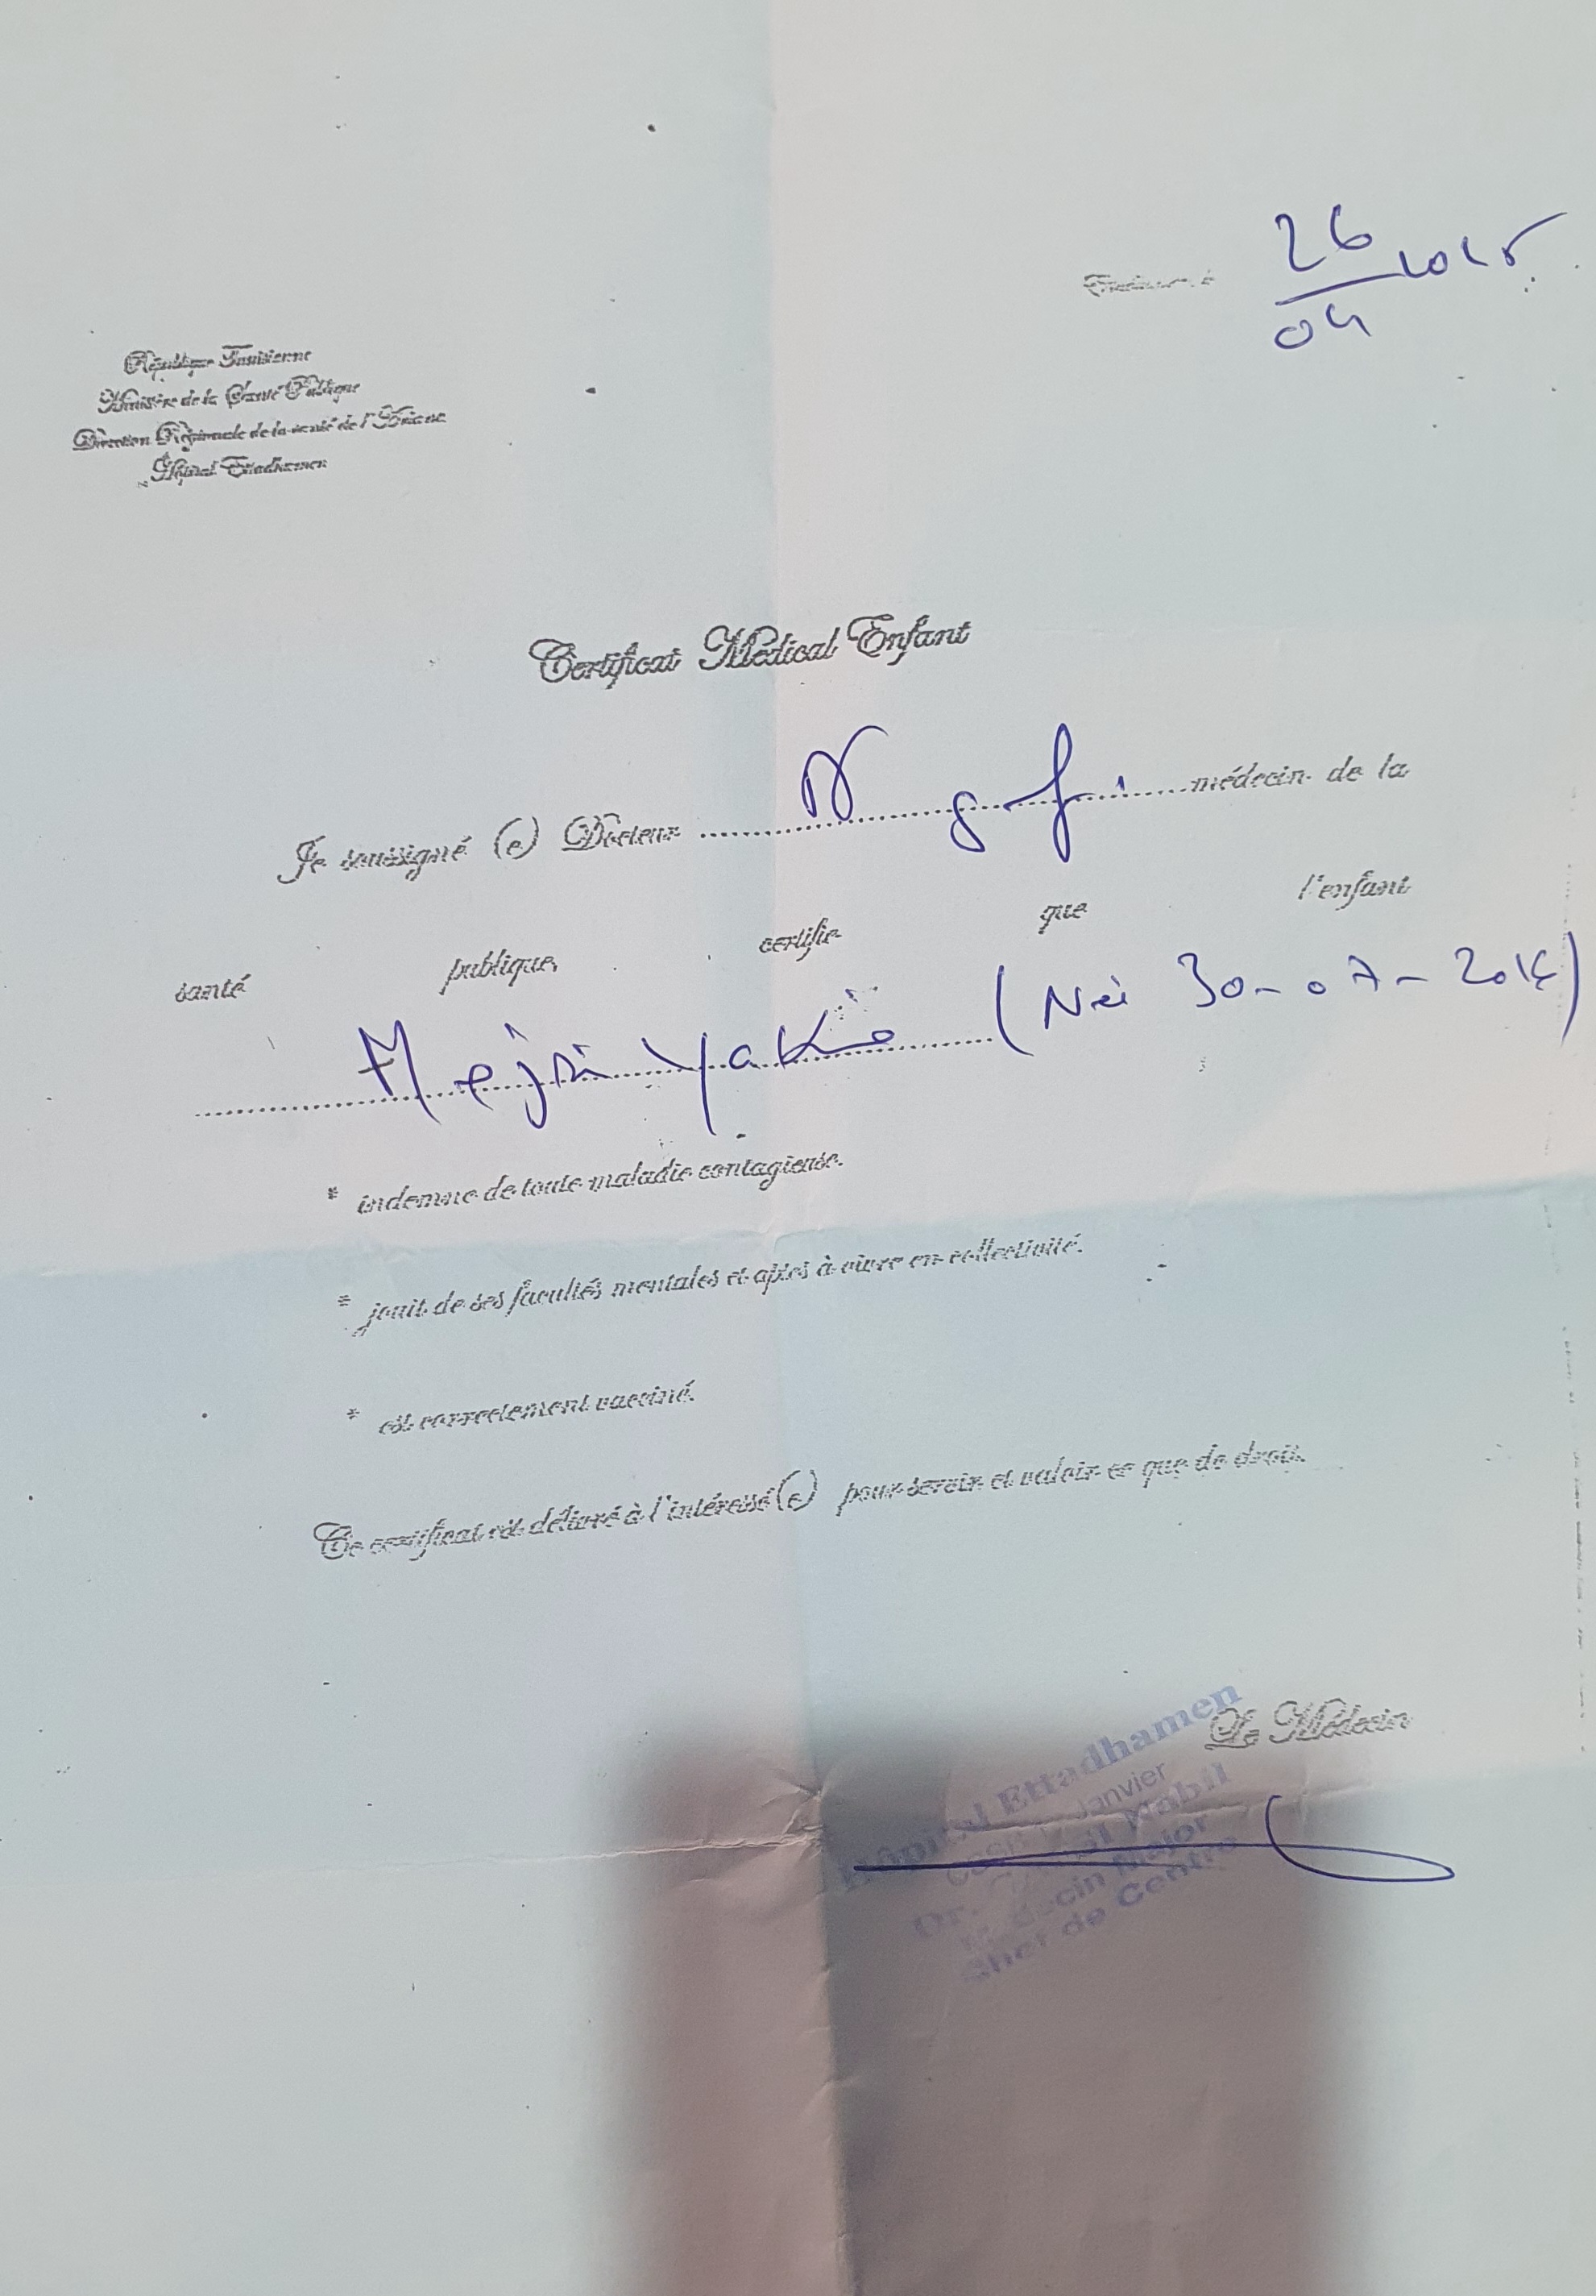 26/04 2015
République Tunisienne
Ministère de la Santé Publique
Direction Régionale de la santé de l'Ariana
Hôpital Ettadhamen
Certificat Médical Enfant
Je soussigné (e) Docteur médecin de la
santé publique, certifie que l'enfant
Mejri (Née 30-07-2014)
* indemne de toute maladie contagieuse.
* jouit de ses facultés mentales et aptes à vivre en collectivité.
* est correctement vacciné.
Ce certificat est délivré à l'intéressé (e) pour servir et valoir ce que de droit.
Le Médecin
Hôpital Ettadhamen
Janvier
Dr. Nabil
Médecin Major
Chef de Centre